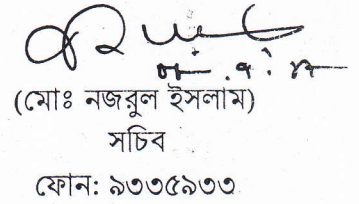 (মোঃ নজরুল ইসলাম)
সচিব
ফোন: ৯৩৩৫৯৩৩